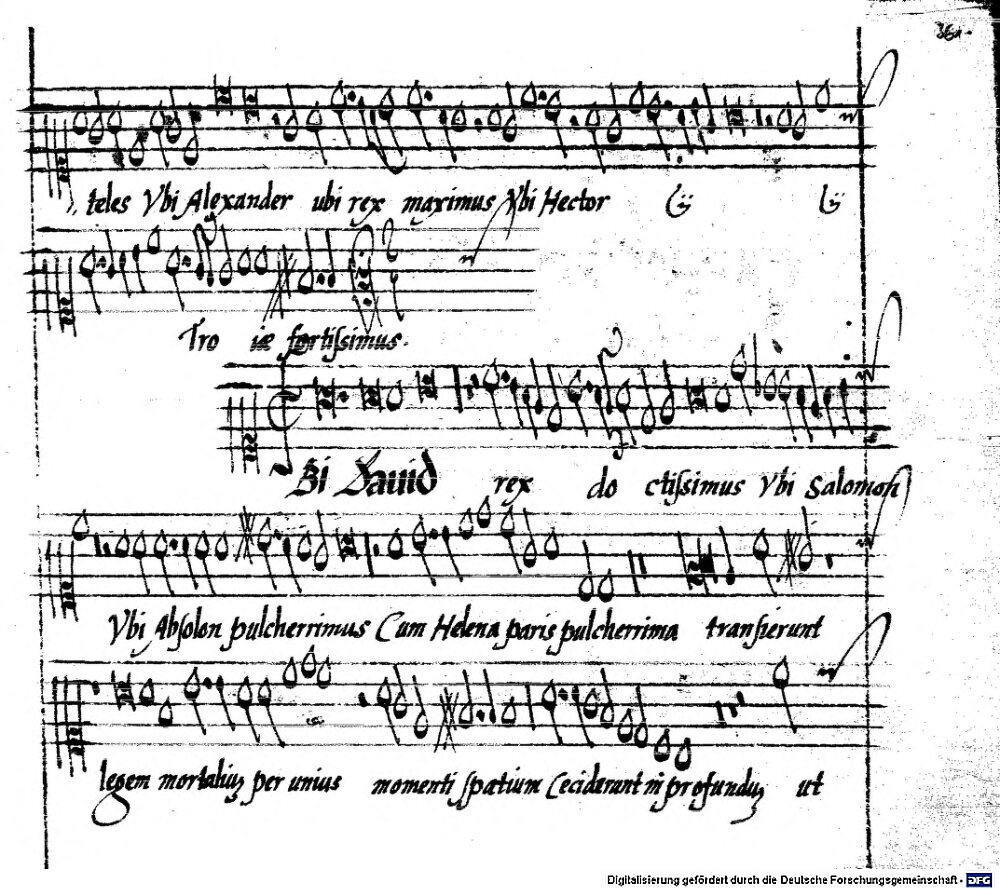 teles Vbi Alexander ubi rex maximus Vbi Hector ij ij
Tro iæ fortissimus.
Vbi Dauid rex do ctissimus Vbi Salomon
Vbi Absolon pulcherrimus Cum Helena paris pulcherrima transierunt
legem mortaliuz per unius momenti spatium Ceciderunt in profunduz ut
Digitalisierung gefördert durch die Deutsche Forschungsgemeinschaft - DFG